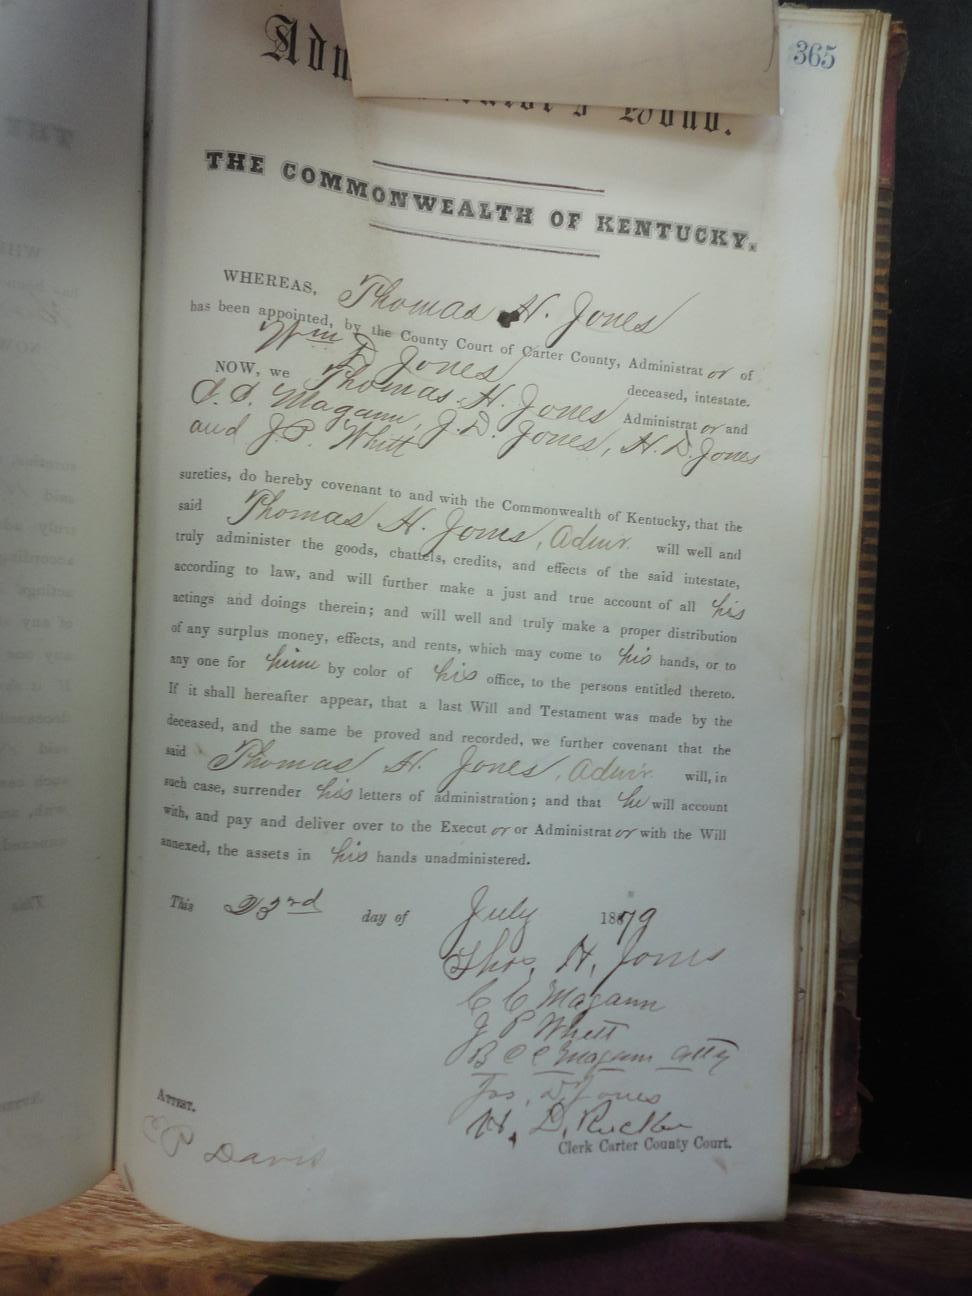 365
Adm
Bond.
THE COMMONWEALTH OF KENTUCKY.
WHEREAS, Thomas H. Jones
has been appointed, by the County Court of Carter County, Administrator of
Wm D Jones deceased, intestate.
NOW, we Thomas H. Jones Administrator and
C. C. Magann, J. D. Jones, H. D. Jones
and J. P. Whitt
sureties, do hereby covenant to and with the Commonwealth of Kentucky, that the
said Thomas H. Jones, Admr. will well and
truly administer the goods, chattels, credits, and effects of the said intestate,
according to law, and will further make a just and true account of all his
actings and doings therein; and will well and truly make a proper distribution
of any surplus money, effects, and rents, which may come to his hands, or to
any one for him by color of his office, to the persons entitled thereto.
If it shall hereafter appear, that a last Will and Testament was made by the
deceased, and the same be proved and recorded, we further covenant that the
said Thomas H. Jones, Admr. will, in
such case, surrender his letters of administration; and that he will account
with, and pay and deliver over to the Executor or Administrator with the Will
annexed, the assets in his hands unadministered.
This 23rd day of July 1879
Thos. H. Jones
C C Magann
J P Whitt
B C C Magann atty
Jas. D. Jones
H. D. Rucker
ATTEST.
Clerk Carter County Court.
Davis